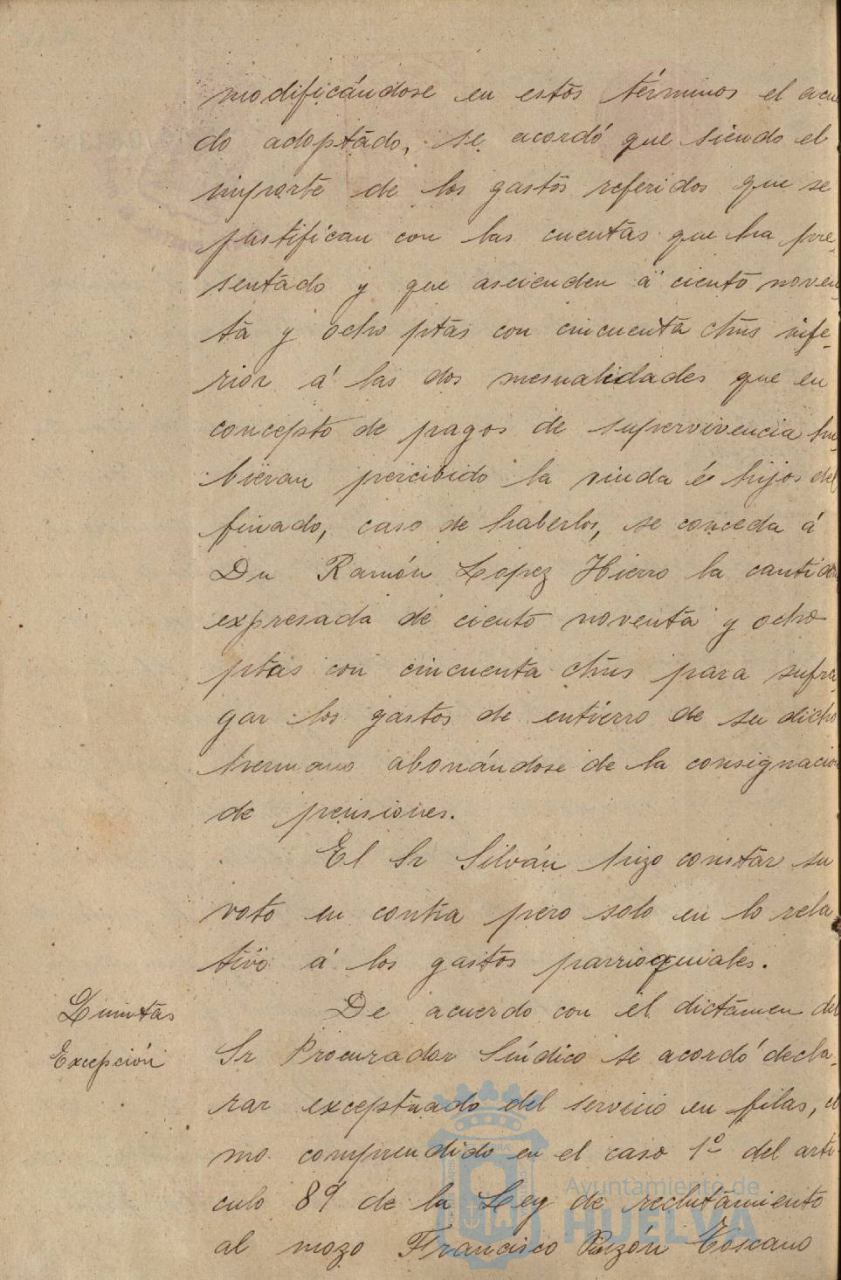 modificándose en estos términos el acuer
do adoptado, se acordó que siendo el
importe de los gastos referidos que se
justifican con las cuentas que ha pre-
sentado y que ascienden á ciento noven
ta y ocho ptas con cincuenta ctms infe-
rior á las dos mesualidades que en
concepto de pagos de supervivencia hu
bieran percibido la viuda é hijos del
finado, caso de haberlos, se conceda á
Dn Ramón López Hierro la cantidad
expresada de ciento noventa y ocho
ptas con cincuenta ctms para sufra-
gar los gastos de entierro de su dicho
hermano abonándose de la consignación
de pensiones.
El Sr Silván hizo constar su
voto en contra pero solo en lo rela
tivo á los gastos parrioquiales.
Quintas
Excepción
De acuerdo con el dictámen del
Sr Procurador Síndico se acordó decla-
rar exceptuado del servicio en filas, co
mo comprendido en el caso 1º del artí
culo 89 de la Ley de reclutamiento
al mozo Francisco Pinzón Toscano
Ayuntamiento de
HUELVA